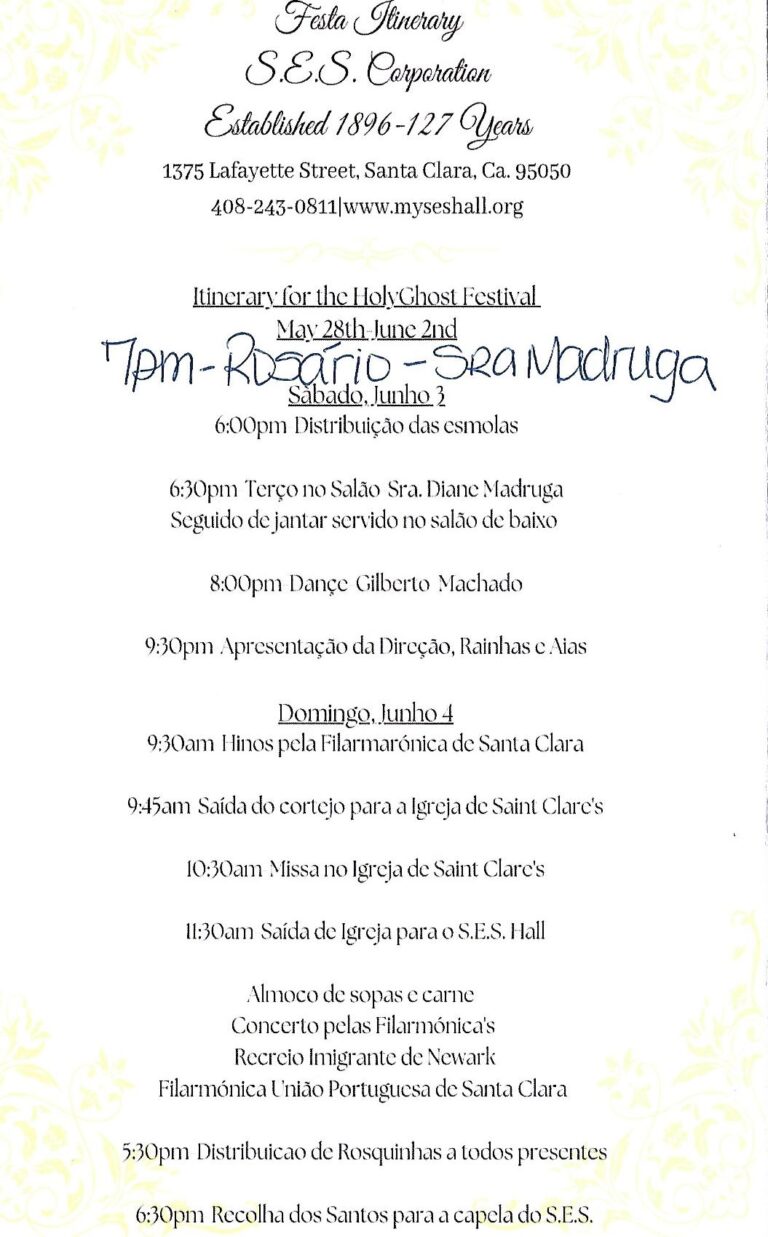 Festa Itinerary
S.E.S. Corporation
Established 1896-127 Years
1375 Lafayette Street, Santa Clara, Ca. 95050
408-243-0811|www.myseshall.org
Itinerary for the HolyGhost Festival
May 28th-June 2nd
7pm - Rosário - SRA Madruga
Sábado, Junho 3
6:00pm Distribuição das esmolas
6:30pm Terço no Salão Sra. Diane Madruga
Seguido de jantar servido no salão de baixo
8:00pm Dançe Gilberto Machado
9:30pm Apresentação da Direção, Rainhas e Aias
Domingo, Junho 4
9:30am Hinos pela Filarmarónica de Santa Clara
9:45am Saída do cortejo para a Igreja de Saint Clare's
10:30am Missa no Igreja de Saint Clare's
11:30am Saída de Igreja para o S.E.S. Hall
Almoco de sopas e carne
Concerto pelas Filarmónica's
Recreio Imigrante de Newark
Filarmónica União Portuguesa de Santa Clara
5:30pm Distribuicao de Rosquinhas a todos presentes
6:30pm Recolha dos Santos para a capela do S.E.S.